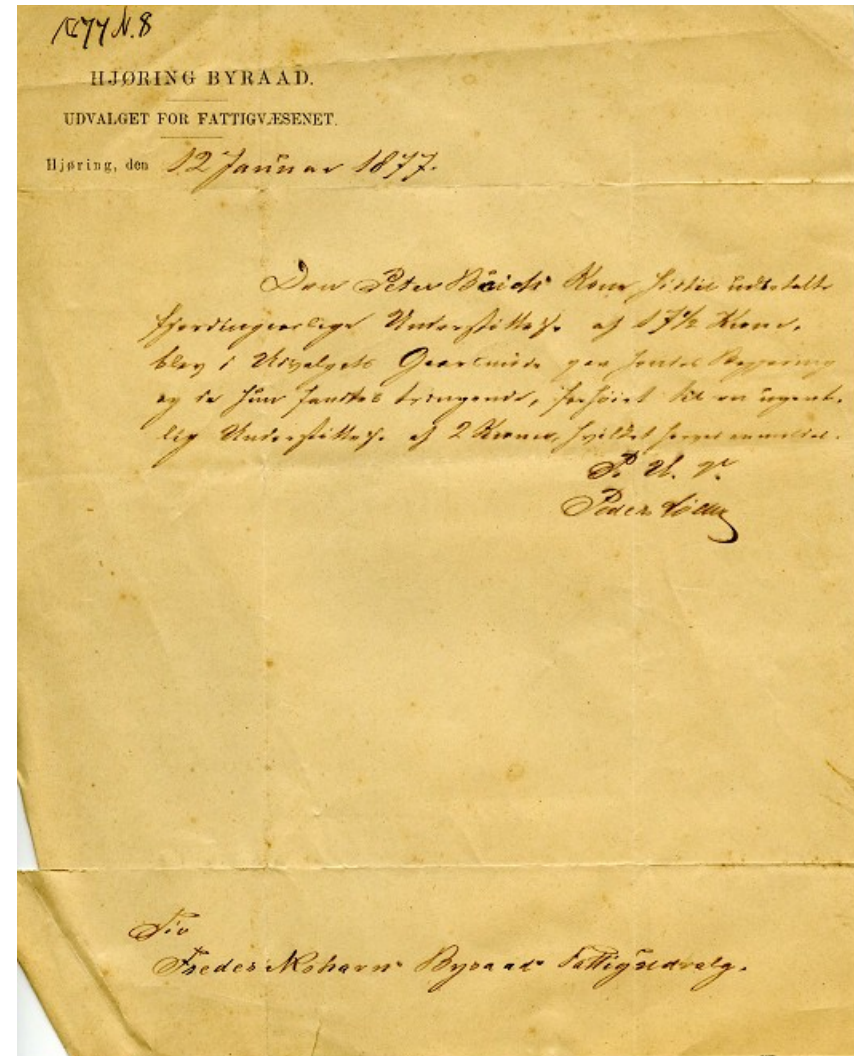 1877 N. 8
HJØRING BYRAAD.
UDVALGET FOR FATTIGVÆSENET.
Hjøring, den 12 Januar 1877.
Den Peter Kone hidtil udbetalte
fjerdingaarlige Understøttelse af 17½ Krone,
blev i Udvalgets paa hendes Begjæring
og da hun fandtes trængende, forhøiet til en ugent-
lig Understøttelse af 2 Kroner, hvilket herved anmeldes.
P. U. V.
Peder
Til
Frederikshavns Byraads Fattigudvalg.